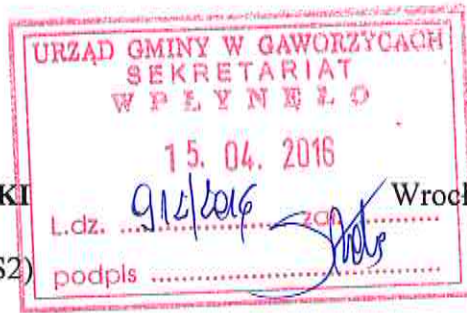 URZĄD GMINY W GAWORZYCACH
SEKRETARIAT
WPŁYNĘŁO
15. 04. 2016
KI
Wrocł
L.dz. ........ zał. ........
S2)
podpis ........